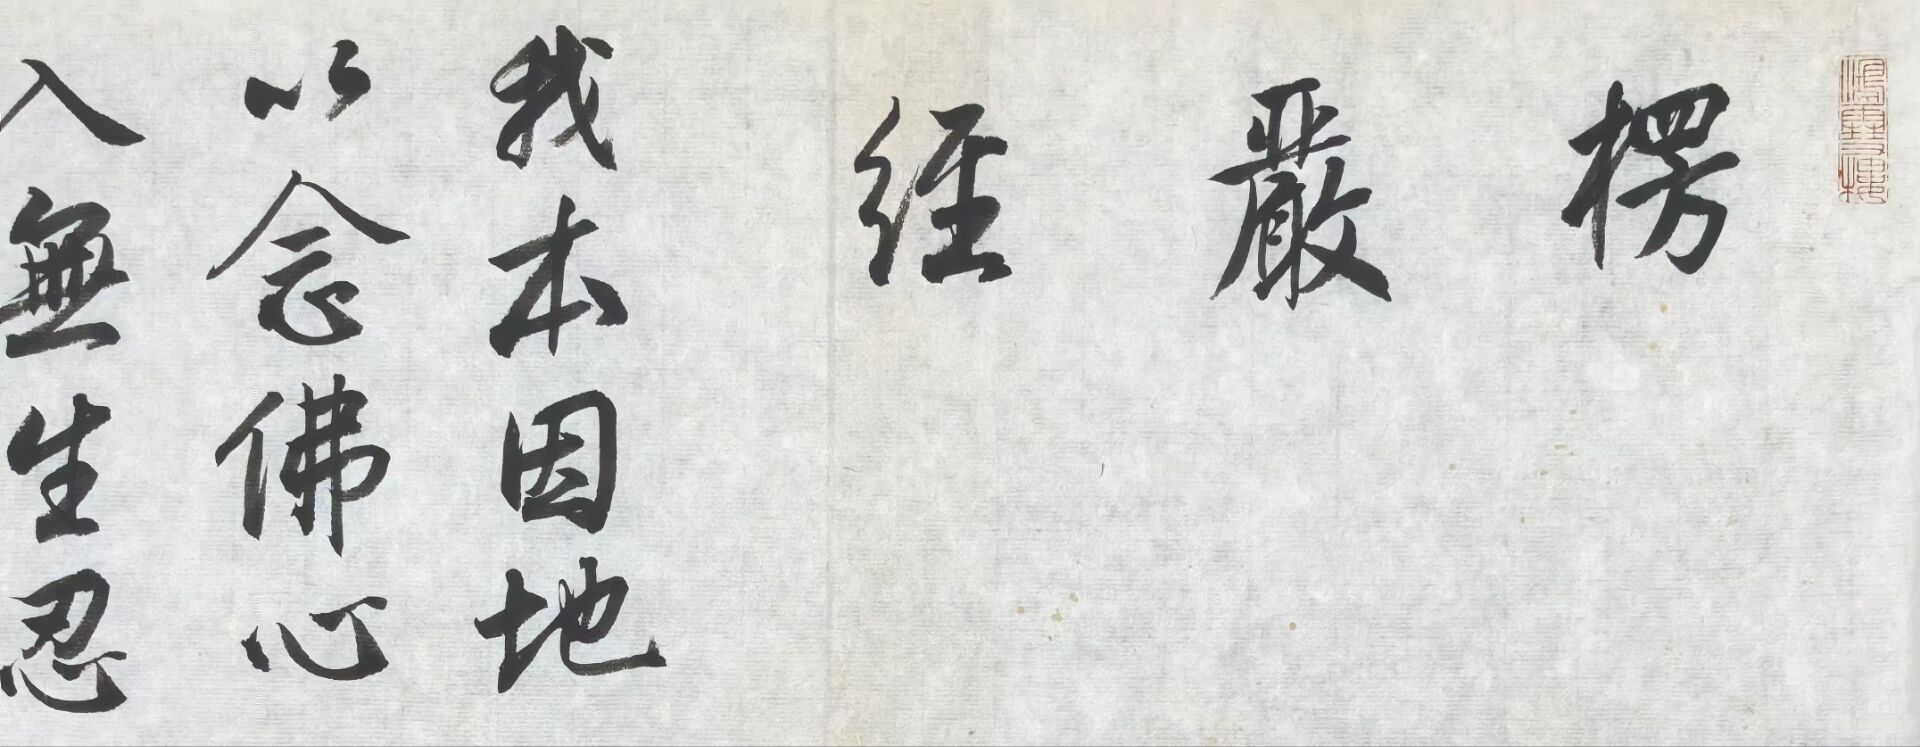 楞嚴經
我本因地
以念佛心
入無生忍